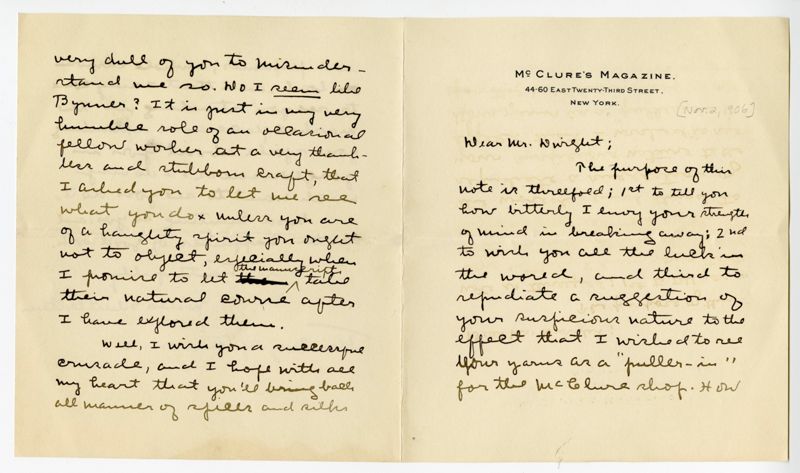 Mc CLURE'S MAGAZINE.
44-60 EAST TWENTY-THIRD STREET.
NEW YORK.
[Nov. 2, 1906]
Dear Mr. Dwight;
The purpose of this
note is threefold; 1st to tell you
how bitterly I envy your strength
of mind in breaking away; 2nd
to wish you all the luck in
the world, and third to
repudiate a suggestion of
your suspicious nature to the
effect that I wished to see
your yarns as a "puller-in"
for the McClure shop. How
very dull of you to misunder-
stand me so. Do I seem like
Bynner? It is just in my very
humble role of an occasional
fellow worker at a very thank-
less and stubborn craft, that
I asked you to let me see
what you do x unless you are
of a haughty spirit you ought
not to object, especially when
I promise to let the manuscript take
their natural course after
I have explored them.
Well, I wish you a successful
crusade, and I hope with all
my heart that you'll bring back
all manner of spices and silks